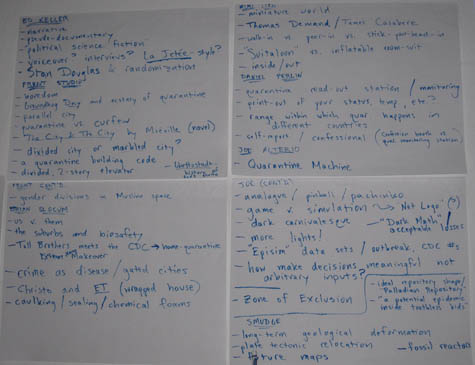 ED KELLER
- narrative
- pseudo-documentary
- "political science fiction"
- voiceover? interviews? La Jetée-style?
- Stan Douglas & randomization
FRONT STUDIO
- boredom
- Decameron and ecstasy of quarantine
- parallel city
- quarantine vs. curfew
- The City & The City by Miéville (novel)
- divided city or marbled city?
- a quarantine building code
- divided, 2-story elevator
- miniature world
- Thomas Demand / James Casebere
- walk-in vs. peer-in vs. stick-your-head-in
- "Suitaloon" vs. inflatable room-suit
- inside/out
DANIEL PERLIN
- quarantine read-out station / monitoring
- print-out of your status, temp, etc.?
- range within which quar happens in
different countries
- self-report / confessional (confession booth vs.
quar. monitoring station)
JOE ALTERIO
- Quarantine Machine
FRONT CONT'D
- gender divisions in Muslim space
BRIAN SLOCUM
- us v. them
- the suburbs and biosafety
- Toll Brothers meets the CDC → home-quarantine
Extreme Makeover
- crime as disease / gated cities
- Christo and ET (wrapped house)
- caulking / sealing / chemical foams
JOE (CONT'D)
- analogue / pinball / pachinko
- game v. simulation → Net Logo (?)
- dark carnivalesque
- "Dark Math"
acceptable losses
- more lights!
- "Episim" data sets / outbreak, CDC #s
- how make decisions meaningful not
arbitrary inputs?
- Zone of Exclusion
- ideal repository shape/
Palladian Repository
- "a potential epidemic
inside toothless kids"
SMUDGE
- long-term geological deformation
- plate tectonic relocation
- fossil reactors
- future maps